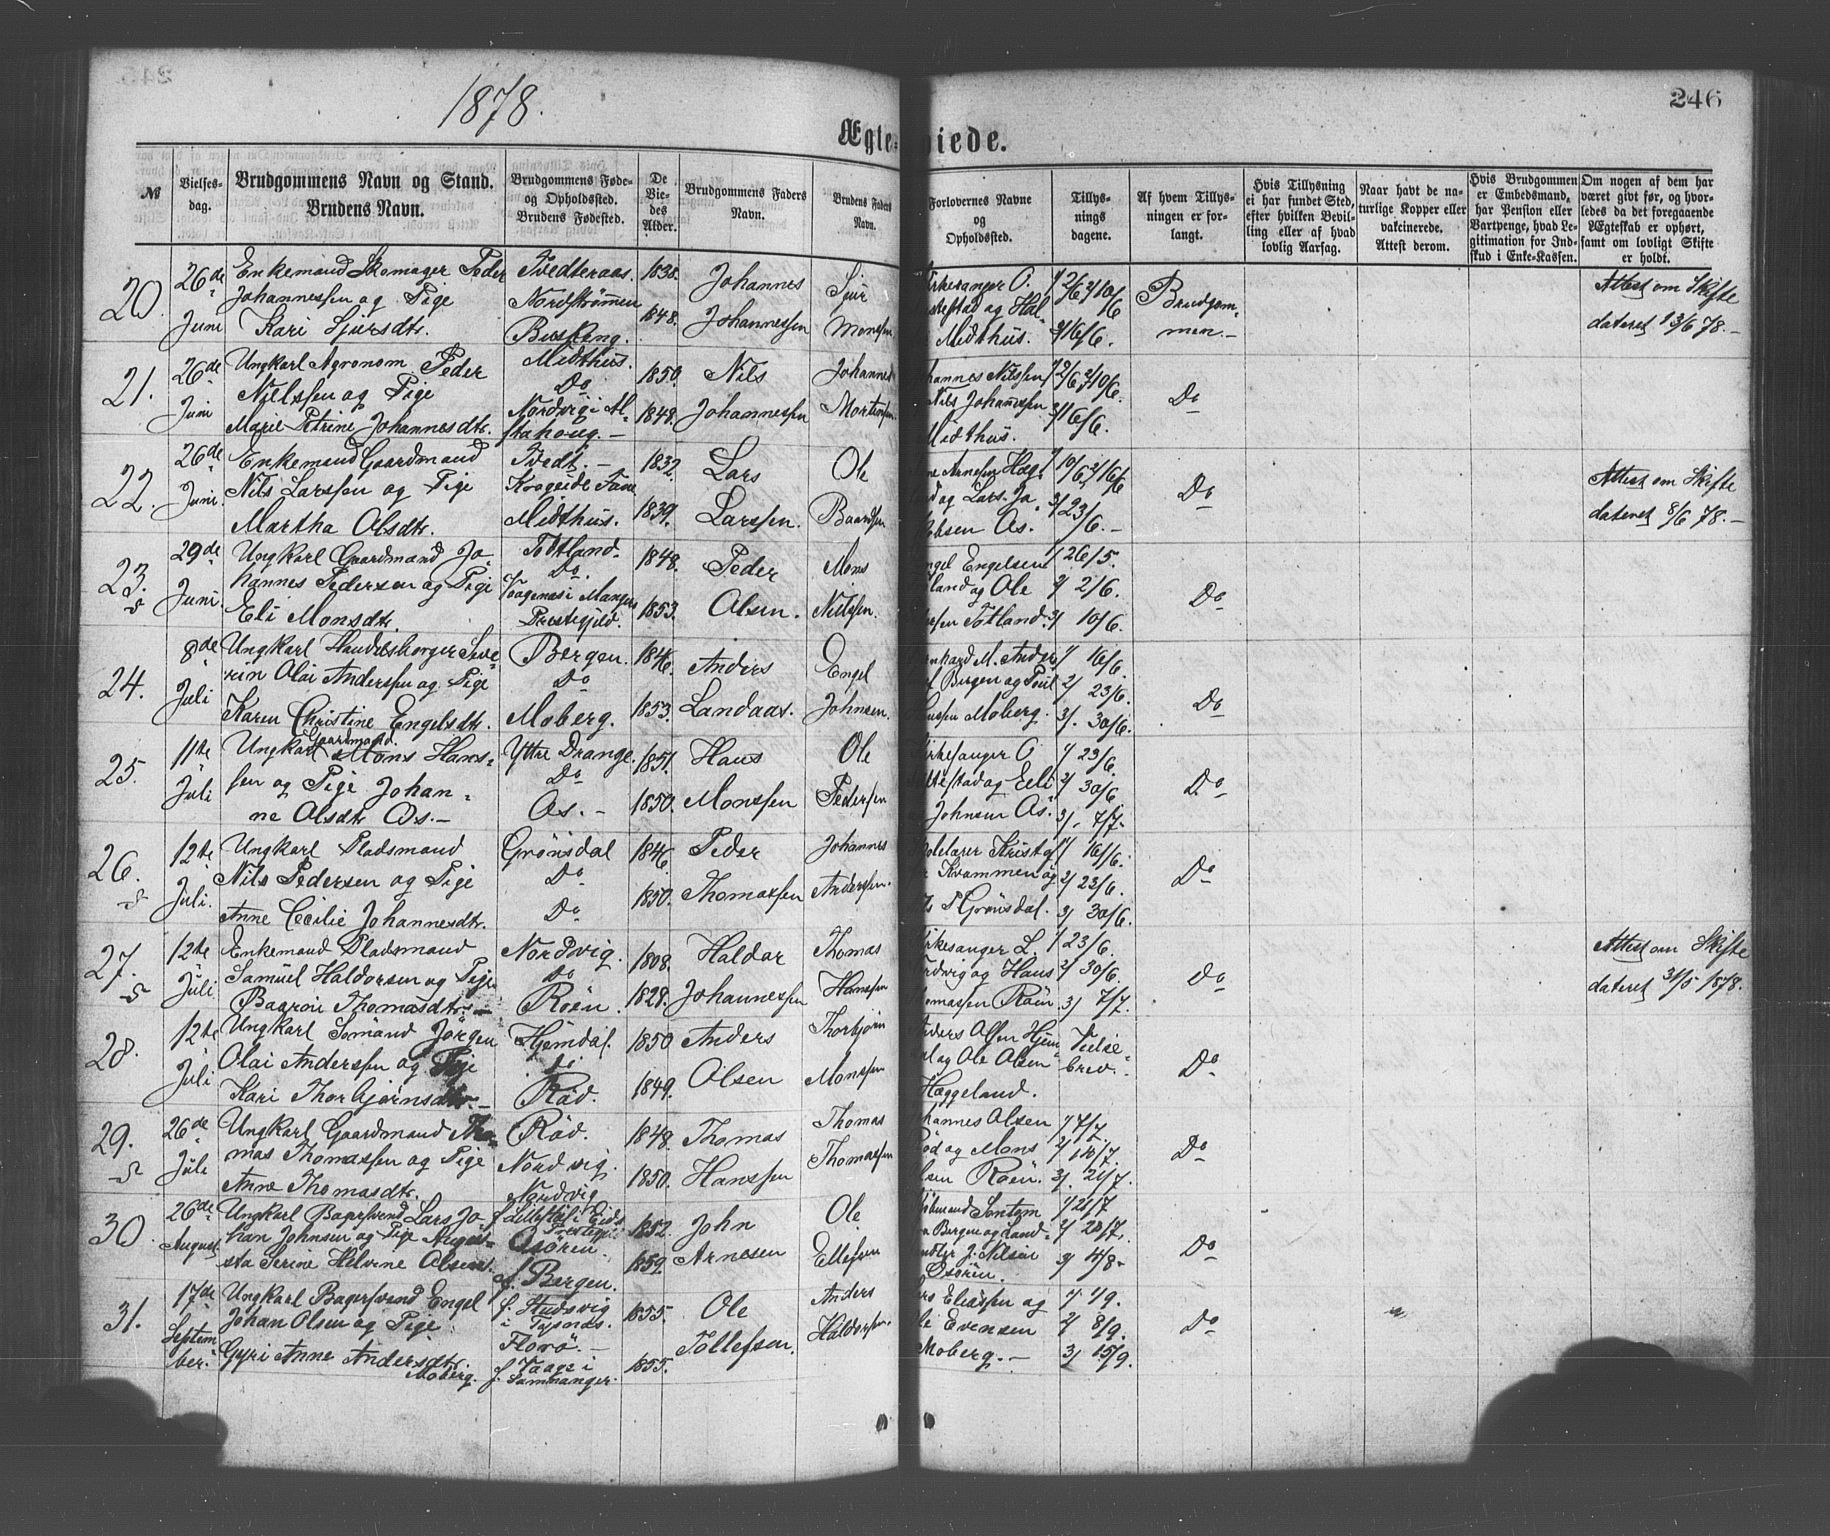 1878.
246
Ægteviede.
№
Vielses-dag.
Brudgommens Navn og Stand. Brudens Navn.
Brudgommens Føde- og Opholdssted. Brudens Fødested.
De Viedes Alder.
Brudgommens Faders Navn.
Brudens Faders Navn.
Forlovernes Navne og Opholdssted.
Tillysningsdagene.
Af hvem Tillysningen er forlangt.
Hvis Tillysning ei har fundet Sted, efter hvilken Bevilling eller af hvad lovlig Aarsag.
Naar havt de naturlige Kopper eller vakcinerede. Attest derom.
Hvis Brudgommen er Embedsmand, har Pension eller Vartpenge, hvad Legitimation for Indskud i Enke-Kassen.
Om nogen af dem har været givt før, og hvorledes da det foregaaende Ægteskab er ophørt, samt om lovligt Skifte er holdt.
20.
26de Juni
Enkemand Skomager Peder
Johannessen og Pige
Kari Sjursdtr.
Tvedteraas.
Nordstrømmen
1838.
1848.
Johannes
Johannessen
Sjur
Monssen
Kirkesanger O.
og Hal
Midthus.
1/ 2/6 2/ 10/6
3/ 16/6.
Brudgom-
men.-
Attest om Skifte
dateret 23/6 78.-
21.
26de Juni
Ungkarl Agronom Peder
Nielssen og Pige
Marie Petrine Johannesdtr.
Midthus.
Do
Nordvig i Al-
stahoug.-
1850.
1848.
Nils
Johannessen
Johannes
Mortensen
Johannes Nilssen
Nils Johannesen
Midthus.
1/ 2/6 2/ 10/6.
3/ 16/6.
Do
22.
26de Juni.
Enkemand Gaardmand
Nils Larssen og Pige
Martha Olsdtr.
Tvedt.-
Krogeide Fane
Midthus.
1832.
1839.
Lars
Larssen.
Ole
Baardsen
Arnesen Hæg
og Lars Ja
kobsen Os.
1/ 10/6 2/ 16/6
3/ 23/6.-
Do
Attest om Skifte
dateret 8/6 78.-
23.
29de Juni.
Ungkarl Gaardmand Jo-
hannes Pedersen og Pige
Eli Monsdtr.
Tøtland.
Do.
Vaagenæs i Mangers
Prestegjeld.
1848.
1853.
Peder
Olsen.
Mons
Nilssen.
Engel Engelsen
Tøtland og Ole
Tøtland.
1/ 26/5.
2/ 2/6.
3/ 10/6.
Do
24.
8de Juli
Ungkarl Handelsborger Seve-
rin Olai Anderssen og Pige
Karen Christine Engelsdtr.
Bergen.
Do
Moberg.
1846.
1853.
Anders
Landaas.
Engel
Johnsen.
M. Anders
af Bergen og Poul
Hanssen Moberg.
1/ 16/6.
2/ 23/6.
3/. 30/6.
Do
25.
11te Juli
Gaardmand.
Ungkarl Mons Hans-
sen og Pige Johan-
ne Olsdtr Os.-
Yttre Drange.
Do
Os.-
1851.
1850.
Hans
Monssen
Ole
Pedersen
Kirkesanger O
og Elli
Johnsen Os.
1/ 23/6.
2/ 30/6
3/. 7/7.
Do
26.
12te Juli.
Ungkarl Pladsmand
Nils Pedersen og Pige
Anne Cecilie Johannesdtr.
Grønsdal
Do
Do
1846.
1850.
Peder
Thomassen
Johannes
Anderssen.
Skolelærer Kristof
Kvammen og
Grønsdal.
1/ 16/6.
2/ 23/6.
3/ 30/6.
Do
27.
12te Juli
Enkemand Pladsmand
Samuel Haldorsen og Pige
Baaroi Thomasdtr.-
Nordvig.
Do
Røen.
1808.
1828.
Haldor
Johannessen
Thomas
Hanssen
Kirkesanger L.
Nordvig og Hans
Thomassen Røen
1/ 23/6.
2/ 30/6.
3/ 7/7.
Do
Attest om Skifte
dateret 31/5 1878.
28.
12te Juli
Ungkarl Sømand Jørgen
Olai Anderssen og Pige
Kari Thorbjørnsdtr.-
Hjemdal.
do
Rød.
1850
1849.
Anders
Olsen
Thorbjørn
Monssen
Anders Olsen Hjem
dal og Ole Olsen
Hæggeland.
Vielse-
brev.
Do
29.
26de Juli
Ungkarl Gaardmand Tho-
mas Thomassen og Pige
Anne Thomasdtr.
Rød.
Nordvig.
Nordvig
1848.
1850.
Thomas
Hanssen
Thomas
Thomassen
Johannes Olsen
Rød og Mons
Olsen Røen.
1/ 7/7.
2/ 14/7.
3/. 21/7.
Do
30.
26de August
Ungkarl Bagersvend Lars Jo-
han Johnsen og Pige Augus-
sta Serine Helvine Olsen.
f. Lillestøl i Eids
Prestegj.
Osøren.
af Bergen.
1852.
1859.
John
Arnesen
Ole
Ellefsen
Bergen og Land-
handler J. Nilsen
Osøren.
1/ 21/7
2/ 28/7.
3/ 4/8-
Do
31.
17de September.
Ungkarl Bagersvend Engel
Johan Olsen og Pige
Gyri Anne Andersdtr.
Moberg.
f. Hudsvig
i Tysnæs.
Florø.-
f. Vaage i
Samnanger.
1855.
1855.
Ole
Tollefsen.
Anders
Haldorsen.
Eliassen og
Ole Evensen
Moberg.-
1/ 1/9.
2/ 8/9.
3/ 15/9.
Do